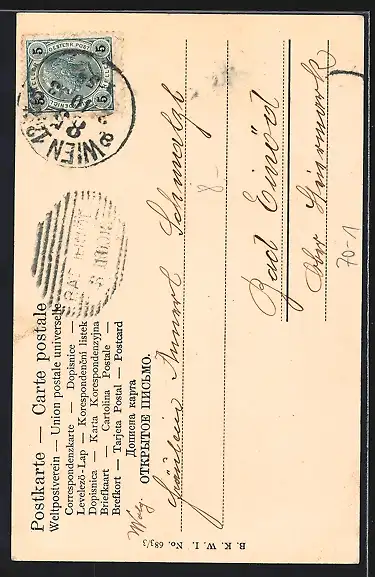 Postkarte — Carte postale
Weltpostverein — Union postale universelle
Correspondenzkarte — Dopisnice —
Levelező-Lap — Korespondenční lístek
Dopisnica — Karta Korespondencyjna
Briefkaart — Cartolina Postale —
Brefkort — Tarjeta Postal — Postcard
Дописна карта
ОТКРЫТОЕ ПИСЬМО.
5 5
5 5
WIEN
Fräulein Annerl
Bad Einöd
Ober Steiermark
8-
70-1
B. K. W. I. No. 683/3